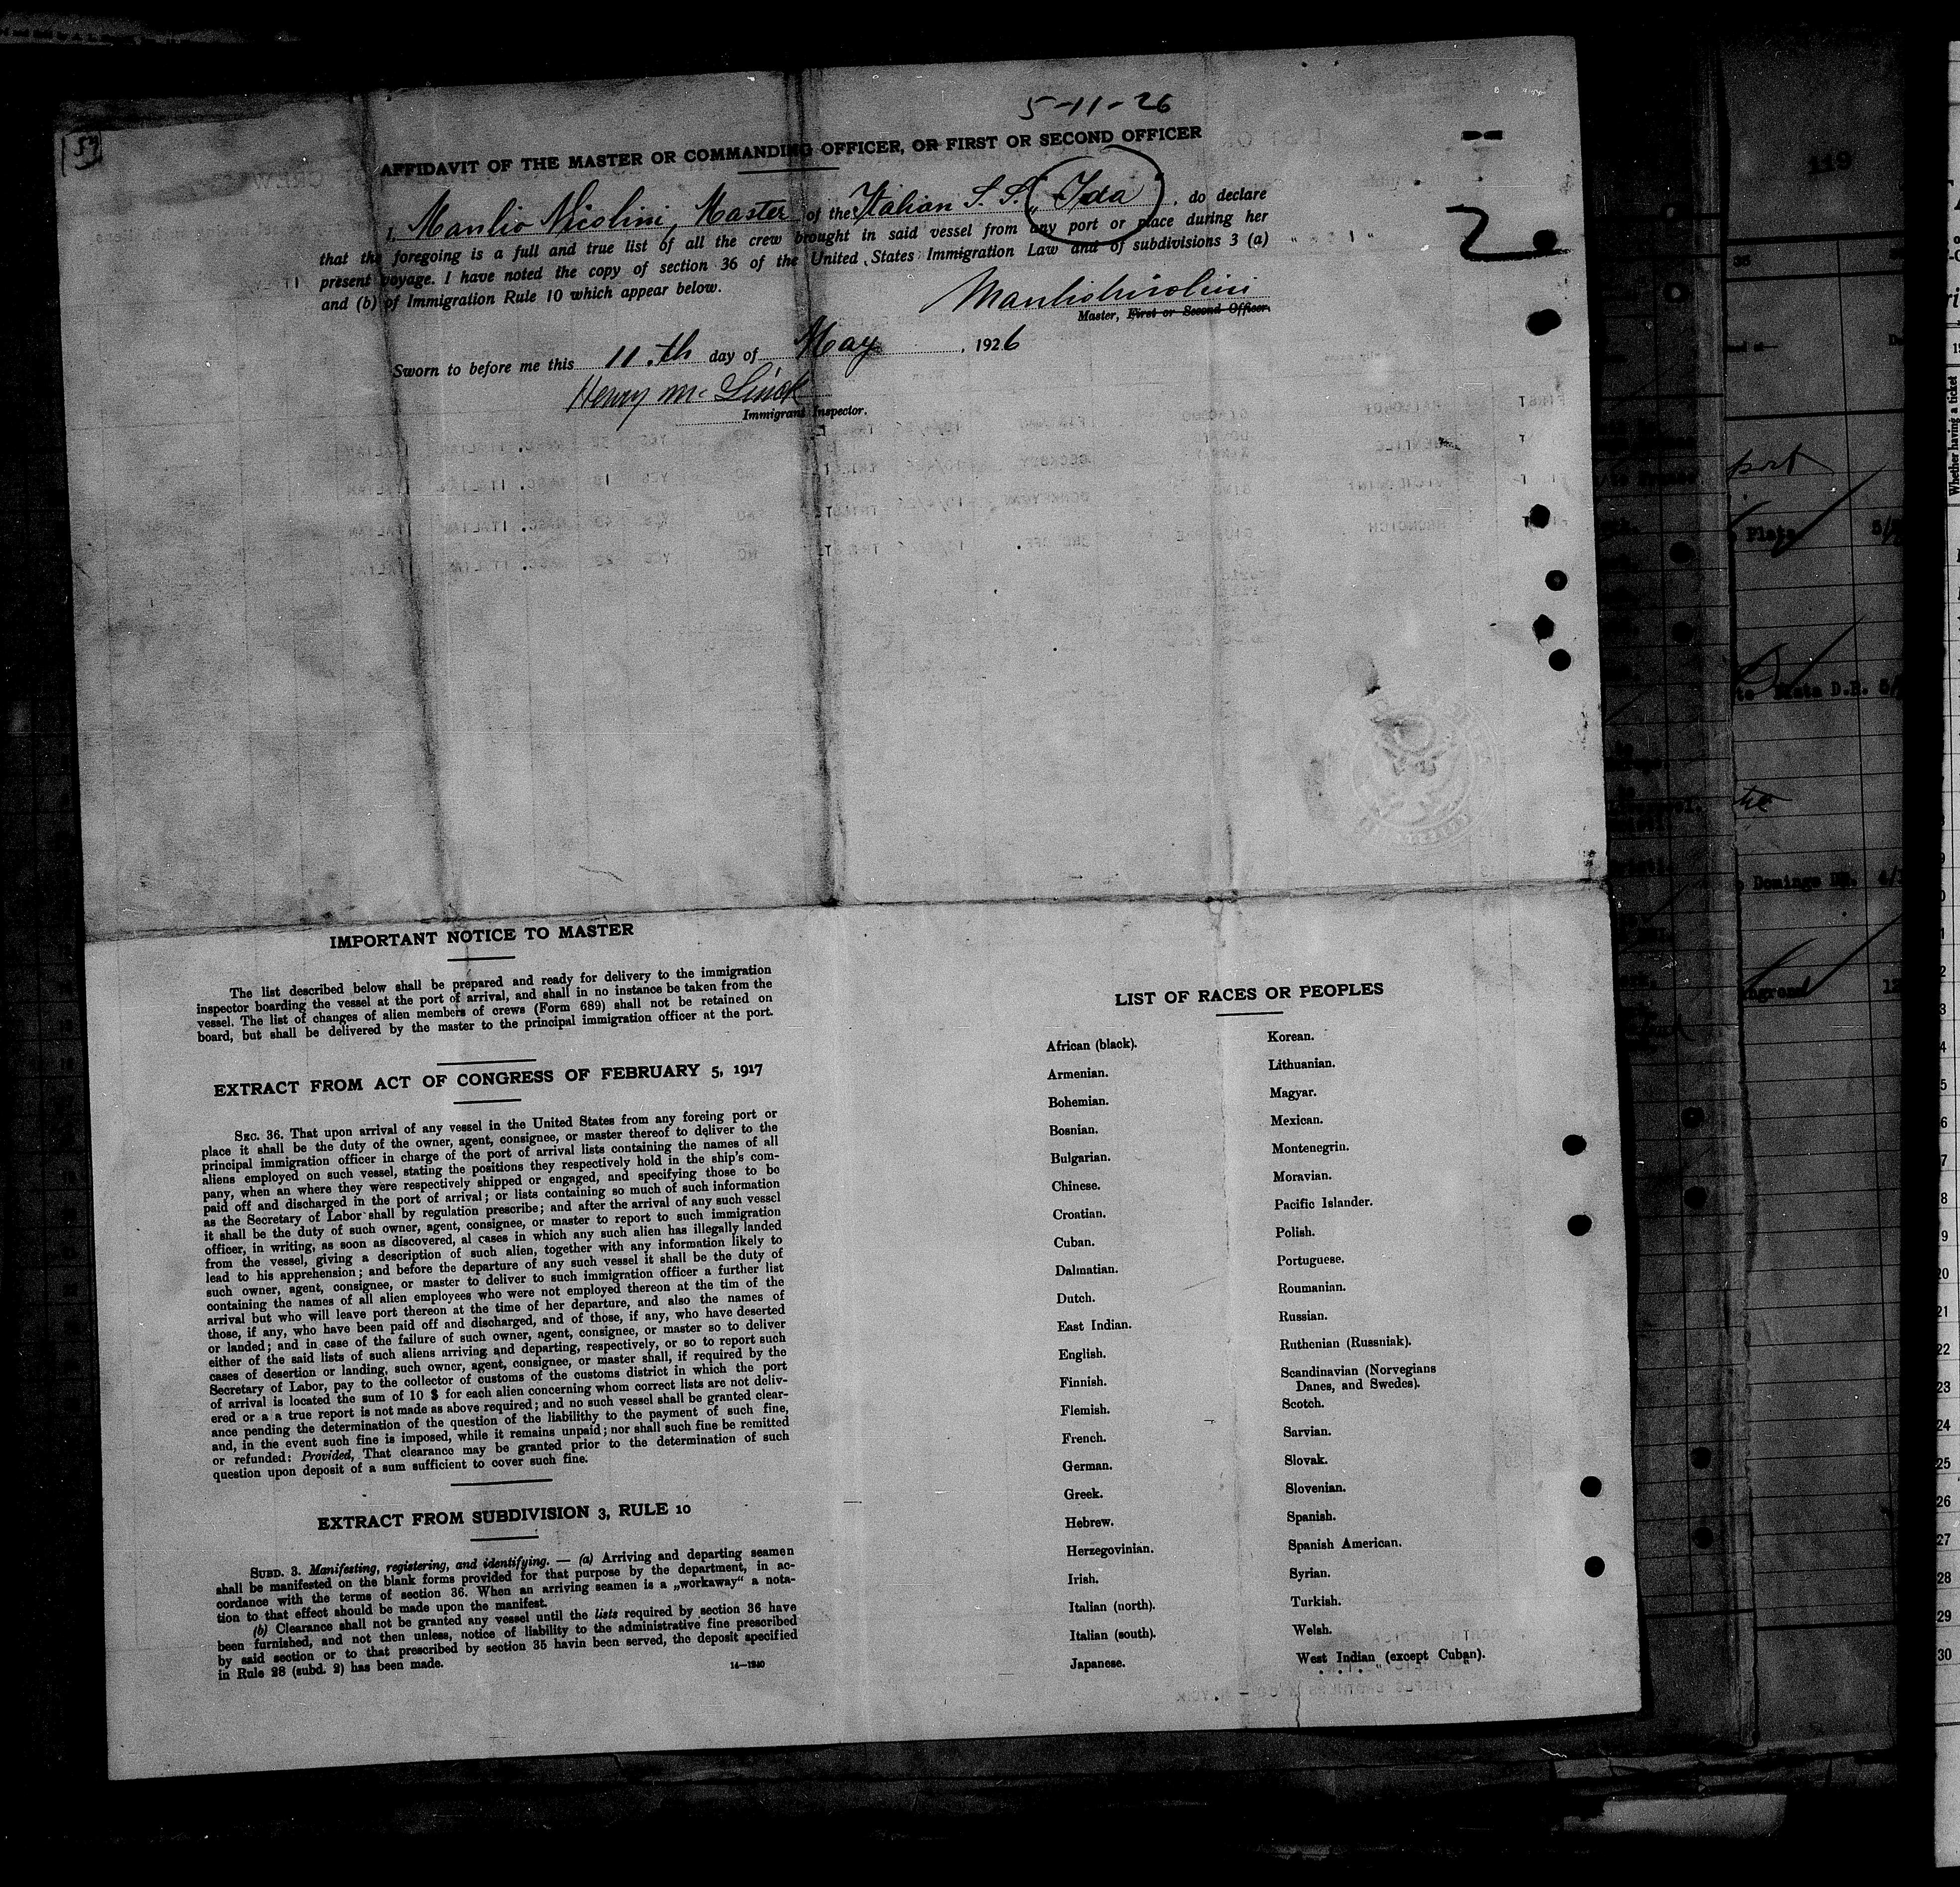 5-11-26
59
AFFIDAVIT OF THE MASTER OR COMMANDING OFFICER, OR FIRST OR SECOND OFFICER
I, Manlio Nicolini, Master of the Italian S. S. „Ida", do declare
that the foregoing is a full and true list of all the crew brought in said vessel from any port or place during her
present voyage. I have noted the copy of section 36 of the United States Immigration Law and of subdivisions 3 (a)
and (b) of Immigration Rule 10 which appear below.
Manlio Nicolini
Master, First or Second Officer.
Sworn to before me this 11.th day of May, 1926
Henry Mc
Immigrant Inspector.
IMPORTANT NOTICE TO MASTER
The list described below shall be prepared and ready for delivery to the immigration
inspector boarding the vessel at the port of arrival, and shall in no instance be taken from the
vessel. The list of changes of alien members of crews (Form 689) shall not be retained on
board, but shall be delivered by the master to the principal immigration officer at the port.
EXTRACT FROM ACT OF CONGRESS OF FEBRUARY 5, 1917
SEC. 36. That upon arrival of any vessel in the United States from any foreing port or
place it shall be the duty of the owner, agent, consignee, or master thereof to deliver to the
principal immigration officer in charge of the port of arrival lists containing the names of all
aliens employed on such vessel, stating the positions they respectively hold in the ship's com-
pany, when an where they were respectively shipped or engaged, and specifying those to be
paid off and discharged in the port of arrival; or lists containing so much of such information
as the Secretary of Labor shall by regulation prescribe; and after the arrival of any such vessel
it shall be the duty of such owner, agent, consignee, or master to report to such immigration
officer, in writing, as soon as discovered, al cases in which any such alien has illegally landed
from the vessel, giving a description of such alien, together with any information likely to
lead to his apprehension; and before the departure of any such vessel it shall be the duty of
such owner, agent, consignee, or master to deliver to such immigration officer a further list
containing the names of all alien employees who were not employed thereon at the tim of the
arrival but who will leave port thereon at the time of her departure, and also the names of
those, if any, who have been paid off and discharged, and of those, if any, who have deserted
or landed; and in case of the failure of such owner, agent, consignee, or master so to deliver
either of the said lists of such aliens arriving and departing, respectively, or so to report such
cases of desertion or landing, such owner, agent, consignee, or master shall, if required by the
Secretary of Labor, pay to the collector of customs of the customs district in which the port
of arrival is located the sum of 10 $ for each alien concerning whom correct lists are not deliv-
ered or a a true report is not made as above required; and no such vessel shall be granted clear-
ance pending the determination of the question of the liabilithy to the payment of such fine,
and, in the event such fine is imposed, while it remains unpaid; nor shall such fine be remitted
or refunded: Provided, That clearance may be granted prior to the determination of such
question upon deposit of a sum sufficient to cover such fine.
EXTRACT FROM SUBDIVISION 3, RULE 10
SUBD. 3. Manifesting, registering, and identifying. — (a) Arriving and departing seamen
shall be manifested on the blank forms provided for that purpose by the department, in ac-
cordance with the terms of section 36. When an arriving seamen is a „workaway" a nota-
tion to that effect should be made upon the manifest.
(b) Clearance shall not be granted any vessel until the lists required by section 36 have
been furnished, and not then unless, notice of liability to the administrative fine prescribed
by said section or to that prescribed by section 35 havin been served, the deposit specified
in Rule 28 (subd. 2) has been made.
14—1240
LIST OF RACES OR PEOPLES
African (black).
Armenian.
Bohemian.
Bosnian.
Bulgarian.
Chinese.
Croatian.
Cuban.
Dalmatian.
Dutch.
East Indian.
English.
Finnish.
Flemish.
French.
German.
Greek.
Hebrew.
Herzegovinian.
Irish.
Italian (north).
Italian (south).
Japanese.
Korean.
Lithuanian.
Magyar.
Mexican.
Montenegrin.
Moravian.
Pacific Islander.
Polish.
Portuguese.
Roumanian.
Russian.
Ruthenian (Russniak).
Scandinavian (Norvegians
Danes, and Swedes).
Scotch.
Sarvian.
Slovak.
Slovenian.
Spanish.
Spanish American.
Syrian.
Turkish.
Welsh.
West Indian (except Cuban).
119
35
port
Plata
Plata D.R.
Domingo DR.
Whether having a ticket
20
21
22
23
24
25
26
27
28
29
30